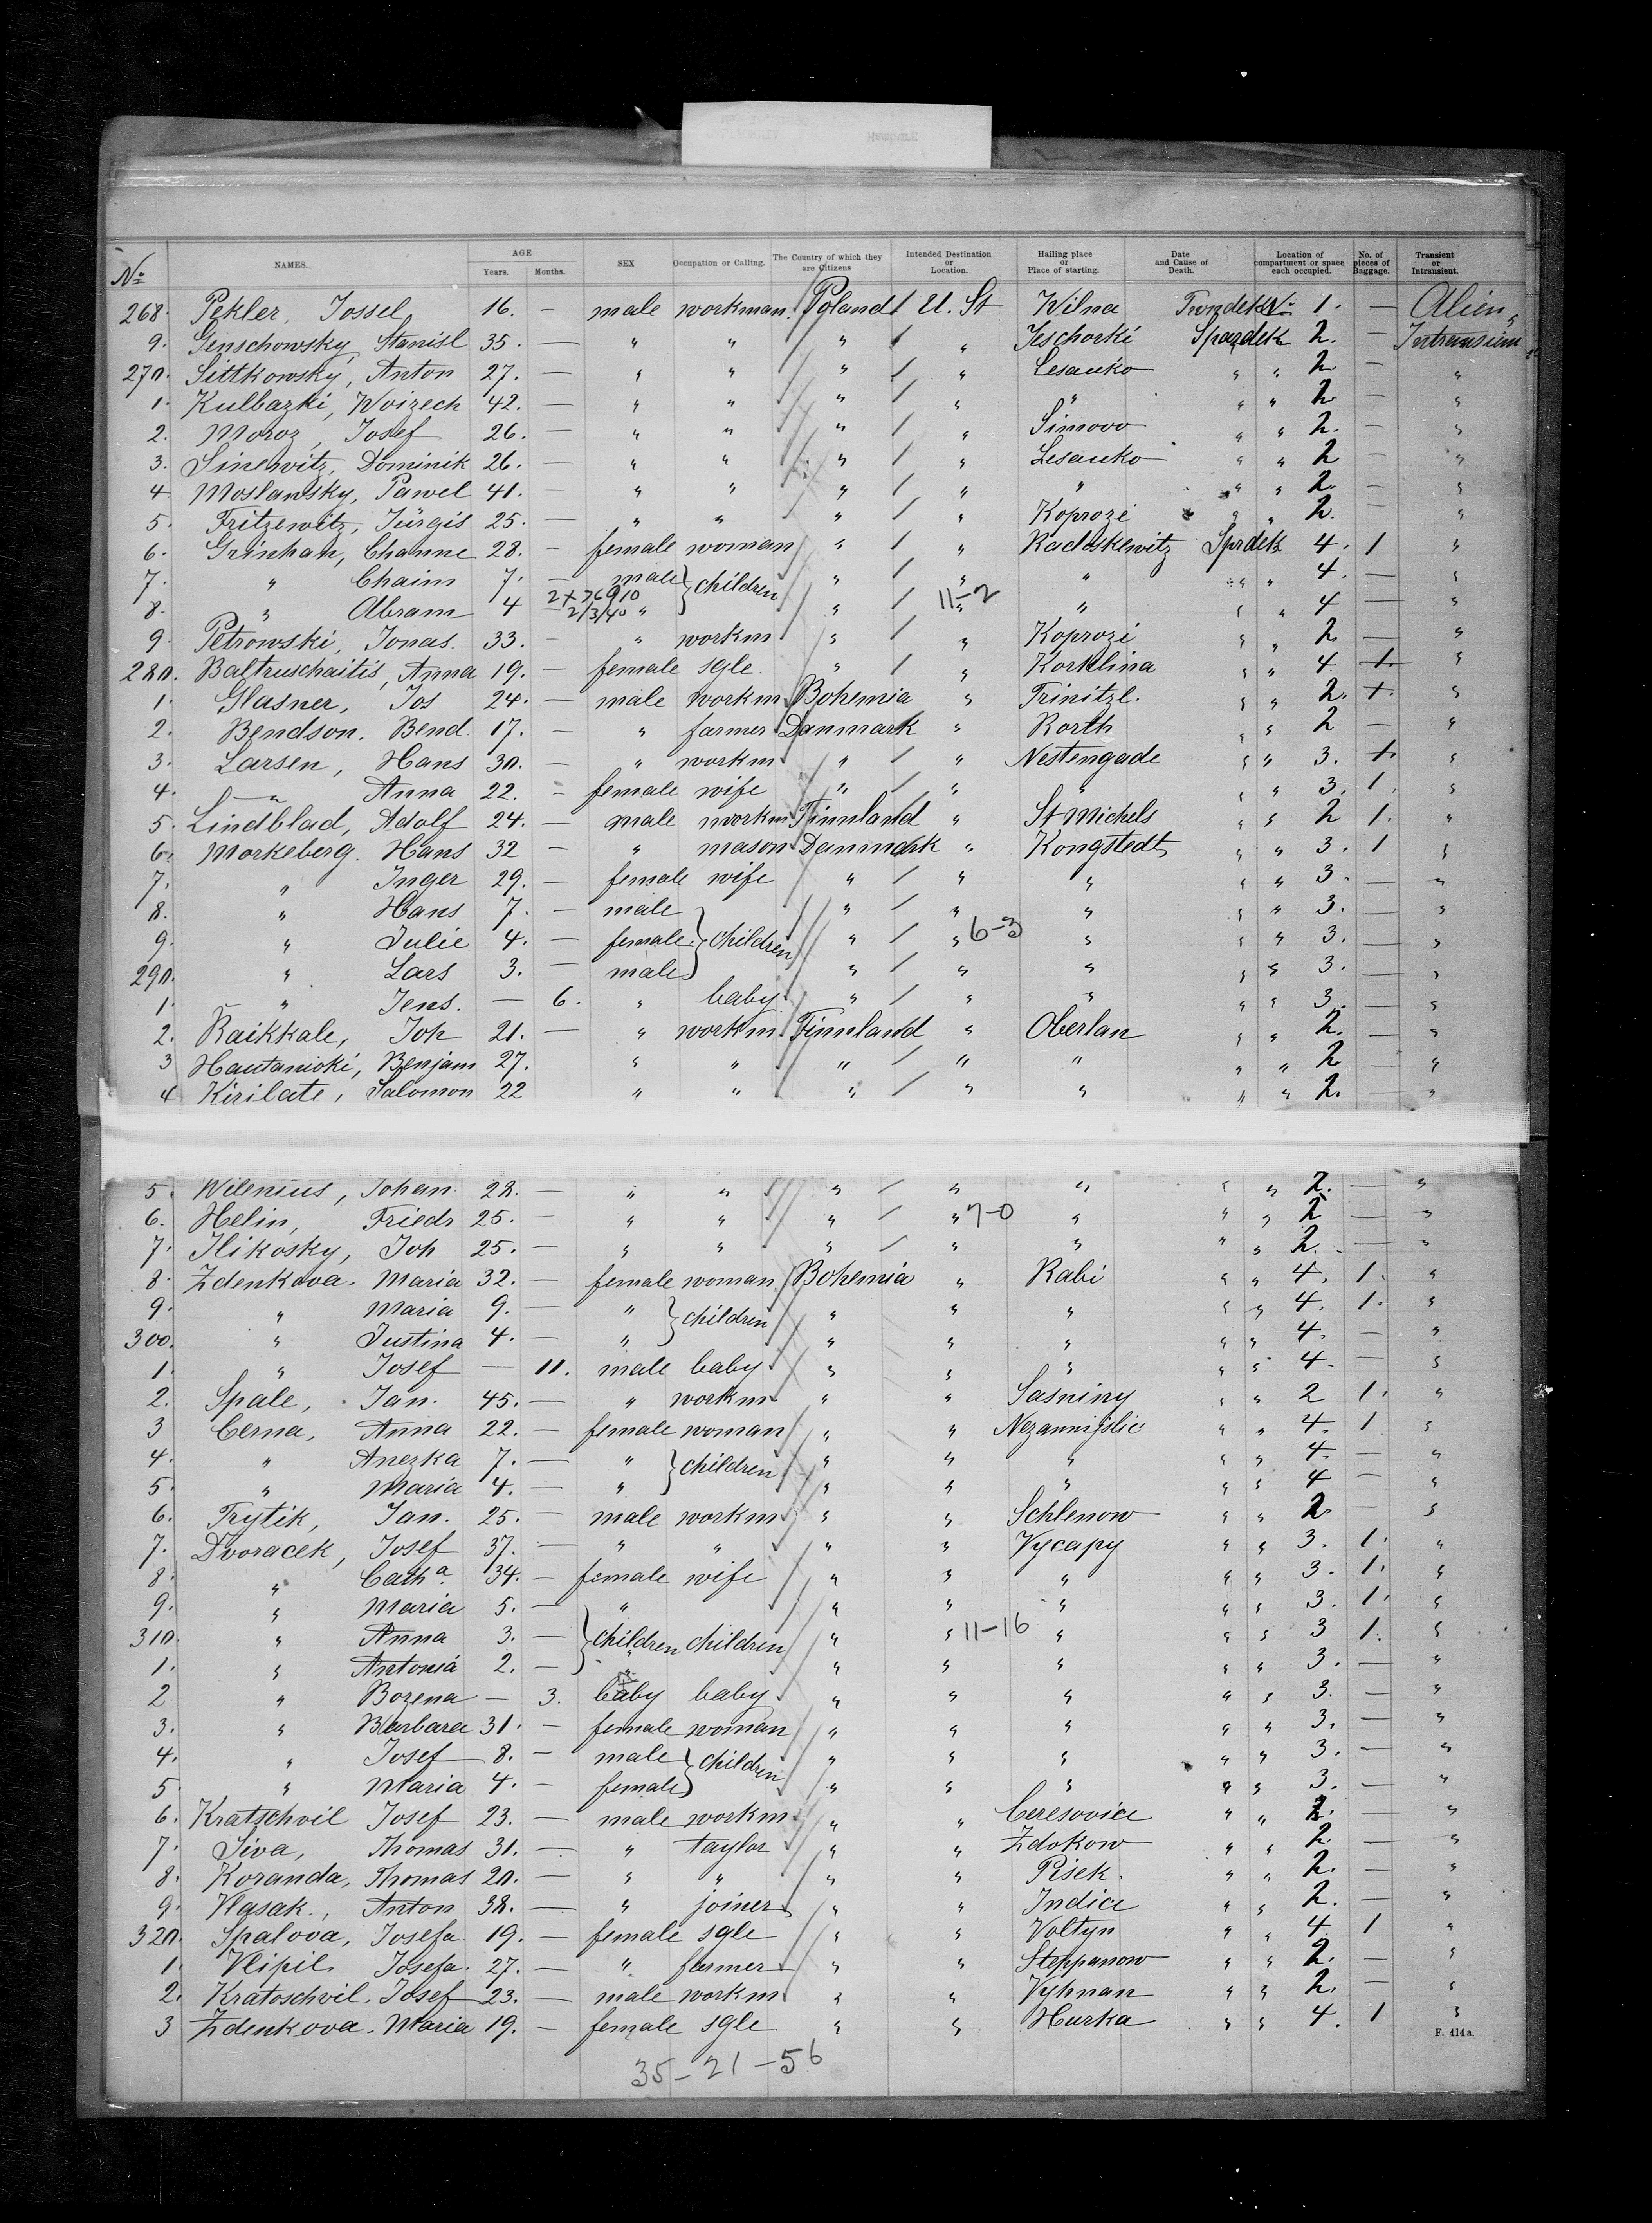 No NAMES. AGE Years. Months. SEX Occupation or Calling. The Country of which they are Citizens Intended Destination or Location. Hailing place or Place of starting. Date and Cause of Death. Location of compartment or space each occupied. No. of pieces of Baggage. Transient or Intransient.
268. Pekler, Jossel 16. — male workman. Poland / U. St Wilna No 1. — Alien
9. Genschowsky, Stanisl 35. — " " " / " Jeschorki 2. —
270. Sittkowsky, Anton 27. — " " " / " Lesauko " " 2 — "
1. Kulbazki, Woizech 42. — " " " / " " " " 2. — "
2. Moroz, Josef 26. — " " " / " Simovo " " 2. — "
3. Sinewitz, Dominik 26. — " " " / " Lesauko " " 2 — "
4 Moslawsky, Pawel 41. — " " " / " " " " 2. — "
5. Fritzewitz, Jürgis 25. — " " " / " Koprozi " " 2. — "
6. Grinhan, Channe 28. — female woman " / " Radoskewitz Sprdek 4. 1 "
7. " Chaim 7. — male } children " / " " " " 4. — "
8. " Abram 4 — " " / 11-2 " " " 4 — "
9. Petrowski, Jonas. 33. — " workm " / " Koprozi " " 2 — "
280. Baltruschaitis, Anna 19. — female sgle. " / " Korklina " " 4. 1. "
1. Glasner, Jos 24. — male workm. Bohemia " Trinitzl. " " 2. 1. "
2. Bendson. Bend. 17. — " farmer Danmark " Rorth " " 2 — "
3. Larsen, Hans 30. — " workm " / " Nestengade " " 3. 1. "
4. — " Anna 22. — female wife " / " " " " 3. 1. "
5. Lindblad, Adolf 24. — male workm Finnland " St Michels " " 2 1. "
6. Morkeberg. Hans 32 — " mason Danmark " Kongstedt " " 3. 1 "
7. " Inger 29. — female wife " / " " " " 3. — "
8. " Hans 7. — male " / " " " " 3. — "
9. " Julie 4. — female } children " / " 6-3 " " " 3. — "
290. " Lars 3. — male " / " " " " 3. — "
1. " Jens. — 6. " baby " / " " " " 3. — "
2. Raikkale, Joh 21. — " workm. Finnland " Oberlan " " 2. — "
3 Hautanioki, Benjam 27. " " " / " " " " 2 — "
4 Kirilate, Salomon 22 " " " / " " " " 2. — "
5. Wilenius, Johan. 28. — " " " / " " " " 2. — "
6. Helin, Friedr 25. — " " " / " 7-0 " " " 2 — "
7. Ilikosky, Joh 25. — " " " / " " " " 2. — "
8. Zdenkova. Maria 32. — female woman Bohemia " Rabi " " 4. 1. "
9. " Maria 9. — " } children " " " " " 4. 1. "
300. " Justina 4. — " " " " " " 4. — "
1. " Josef — 11. male baby " " " " " 4. — "
2. Spale, Jan. 45. — " workm " " Sasniny " " 2 1. "
3 Cerna, Anna 22. — female woman " " " " 4. 1 "
4. " Anezka 7. — " } children " " " " " 4. — "
5. " Maria 4. — " " " " " " 4 — "
6. Trytik, Jan. 25. — male workm " " Schlenow " " 2. — "
7. Dvoracek, Josef 37. — " " " " Vycapy " " 3. 1. "
8. " Catha. 34. — female wife " " " " " 3. 1. "
9. " Maria 5. — " " " " " " 3. 1. "
310. " Anna 3. — } children children " " 11-16 " " " 3 1. "
1. " Antonia 2. — " " " " " " 3. — "
2 " Bozena — 3. baby baby " " " " " 3. — "
3. " Barbara 31. — female woman " " " " " 3. — "
4. " Josef 8. — male } children " " " " " 3. — "
5. " Maria 4. — female " " " " " 3. — "
6. Kratschvil Josef 23. — male workm " " Ceresovice " " 2. — "
7. Siva, Thomas 31. — " taylor " " Zdokow " " 2. — "
8. Koranda, Thomas 20. — " " " " Pisek. " " 2. — "
9. Vlasak., Anton 38. — " joiner " " Indice " " 2. — "
320. Spalova, Josefa. 19. — female sgle " " Voltyn " " 4. 1 "
1. Vlipil Josefa. 27. — " farmer " " Steppanow " " 2. — "
2. Kratoschvil. Josef 23. — male workm. " " Vyhnan " " 2. — "
3 Zdenkova. Maria 19. — female sgle " " Hurka " " 4. 1 "
F. 414a.
35-21-56